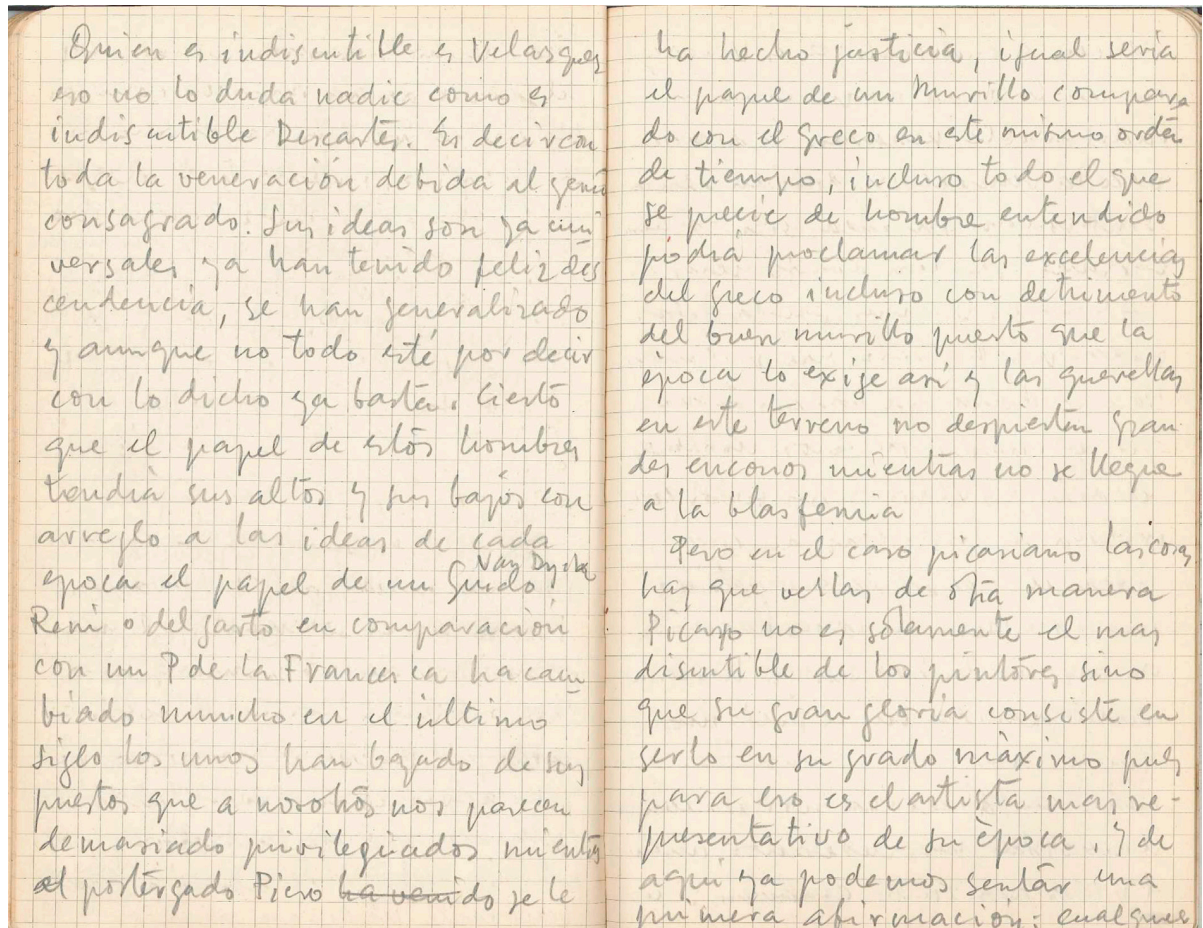 Quien es indiscutible es Velasquez
eso no lo duda nadie como es
indiscutible Descartes. Es decir con
toda la veneración debida al genio
consagrado. Sus ideas son ya uni
versales, ya han tenido feliz des
cendencia, se han generalizado
y aunque no todo esté por decir
con lo dicho ya basta. Cierto
que el papel de estos hombres
tendrá sus altos y sus bajos con
arreglo a las ideas de cada
época el papel de un Guido Van Dyck
Reni o del Sarto en comparación
con un P de la Francesca ha cam
biado mucho en el último
siglo los unos han bajado de sus
puestos que a nosotros nos parecen
demasiado privilegiados mientras
al postergado Piero ha venido se le
ha hecho justicia, igual seria
el papel de un Murillo compara
do con el Greco en este mismo orden
de tiempo, incluso todo el que
se precie de hombre entendido
podrá proclamar las excelencias
del Greco incluso con detrimento
del buen murillo puesto que la
época lo exije asi y las querellas
en este terreno no despiertan gran
des enconos mientras no se llegue
a la blasfemia
Pero en el caso picasiano las cosas
hay que verlas de otra manera
Picasso no es solamente el mas
discutible de los pintores sino
que su gran gloria consiste en
serlo en su grado máximo pues
para eso es el artista mas re-
presentativo de su época. Y de
aqui ya podemos sentar una
primera afirmación: cualquier